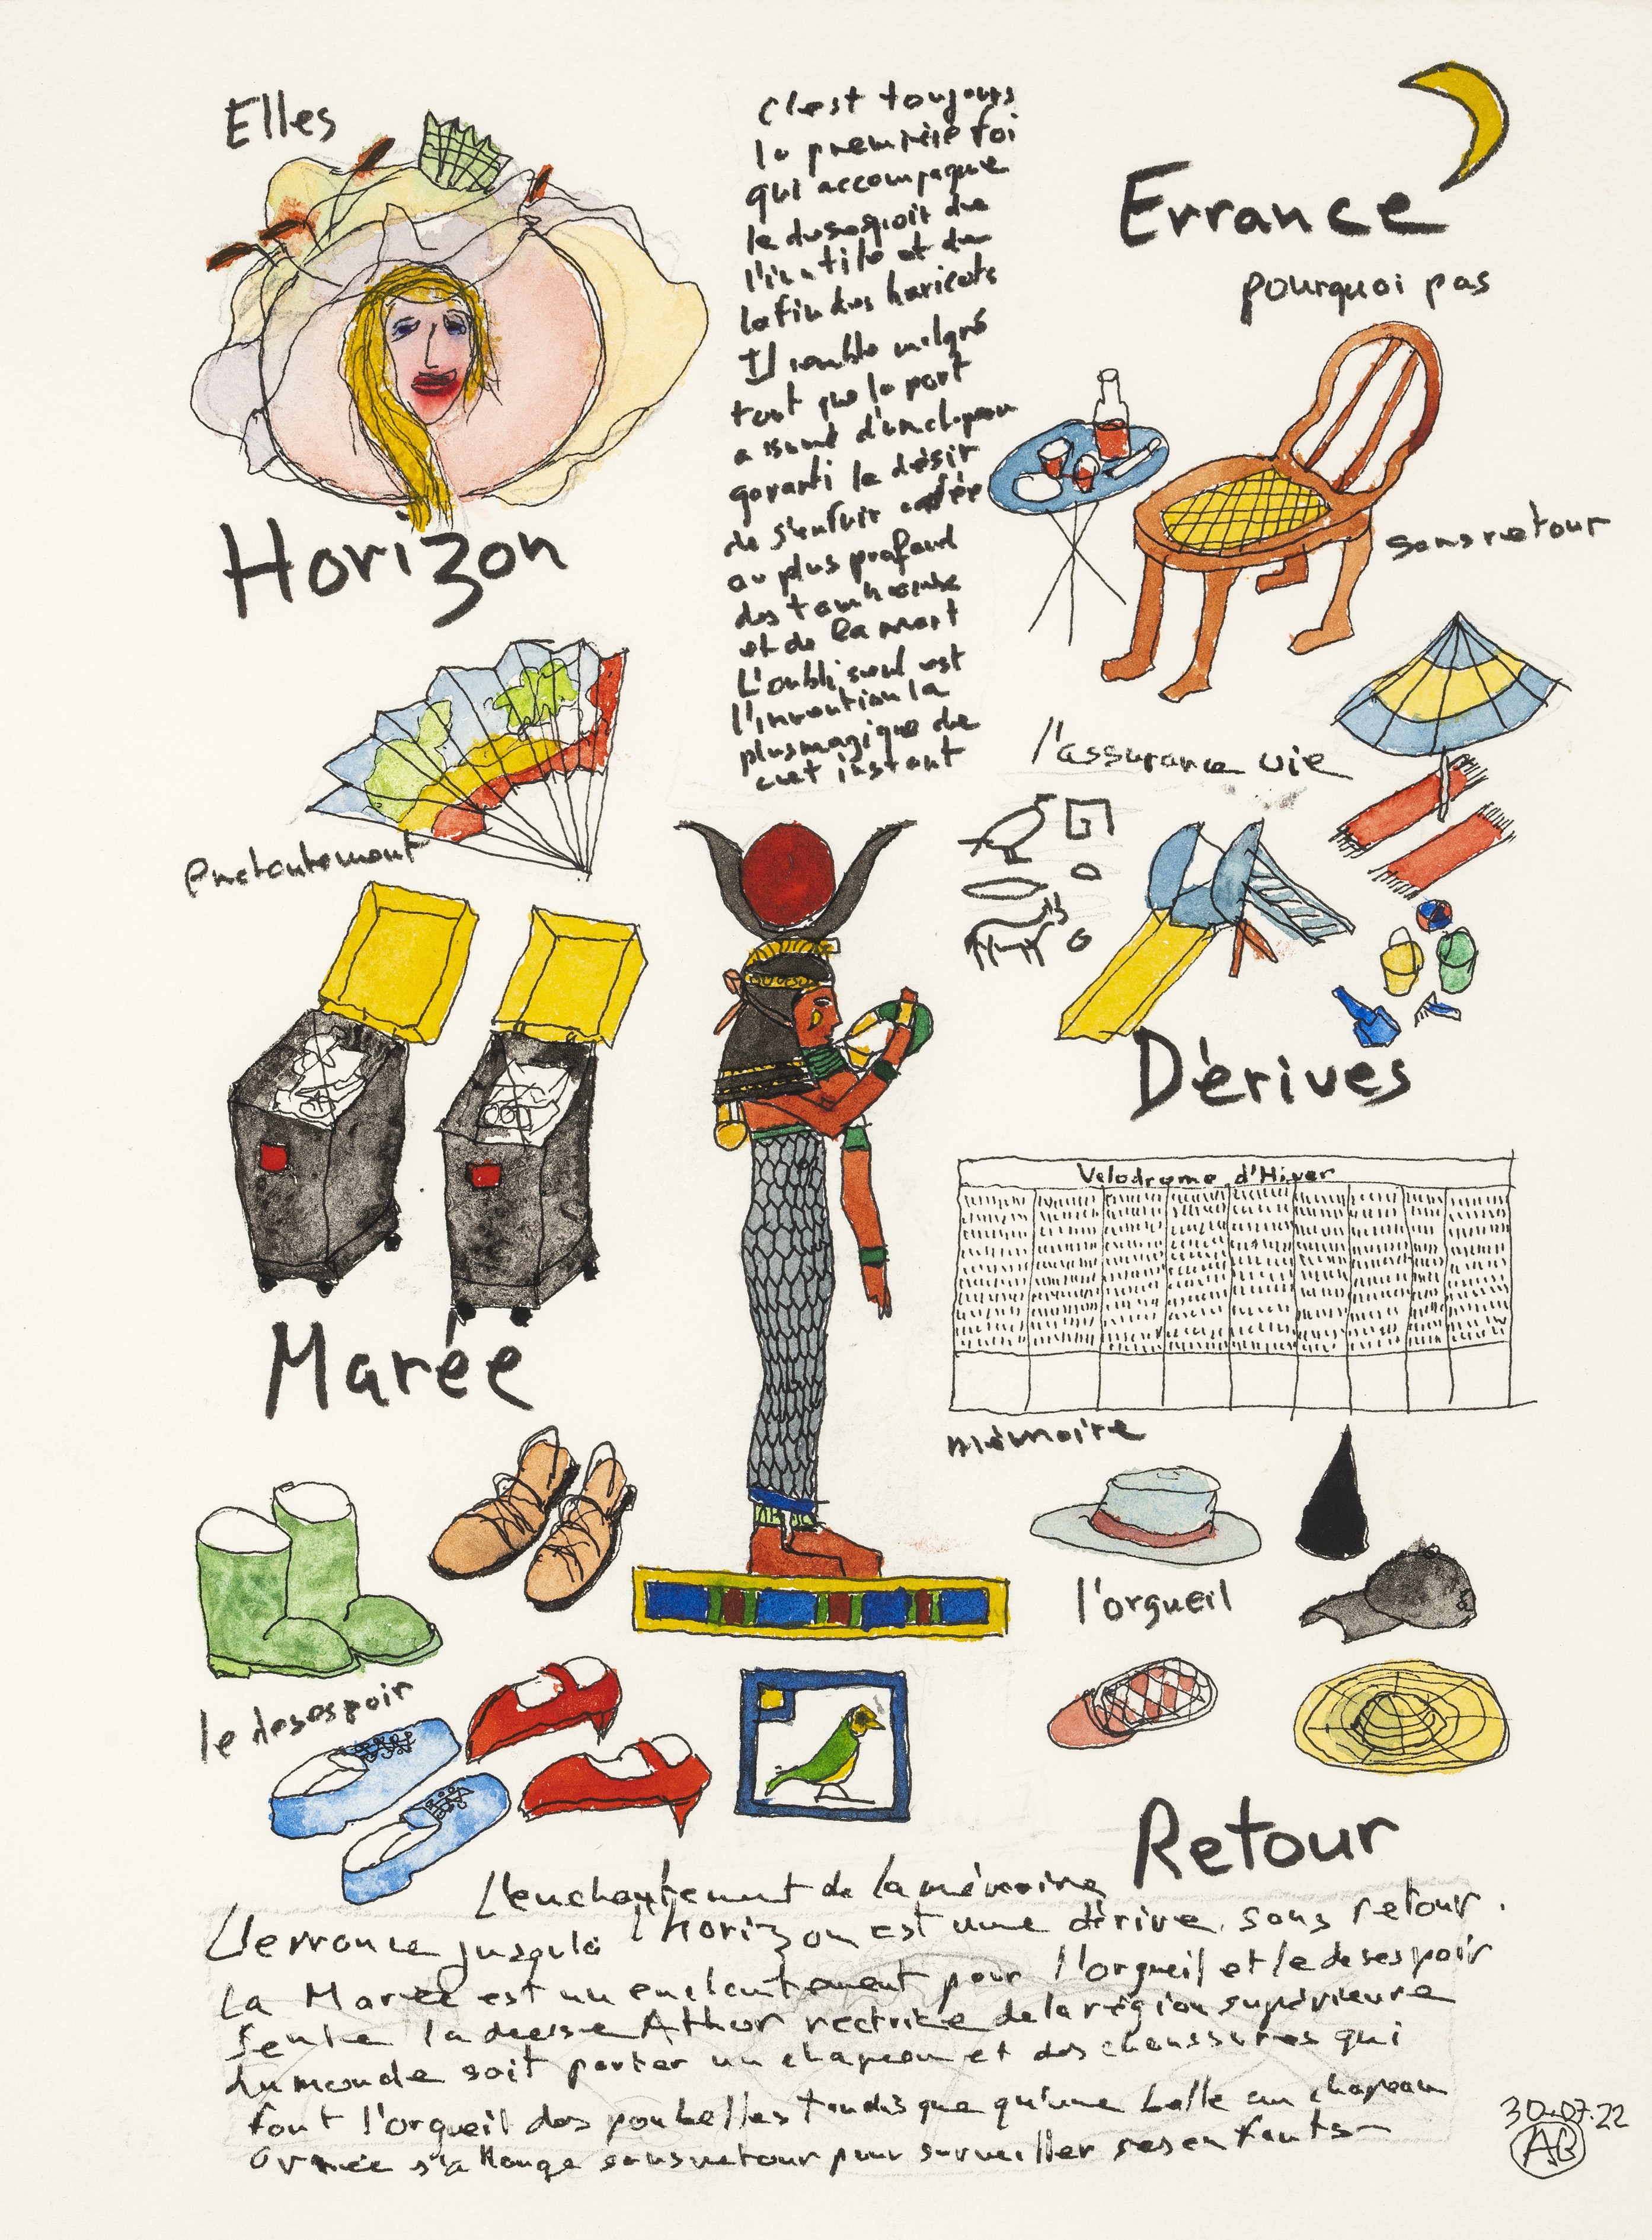 Elles
Horizon
c'est toujours
la première foi
qui accompagne
le desespoir de
l'inutile et de
la fin des haricots
Il semble malgré
tout que la part
assumé d'un chapeau
garanti le désir
de s'enfuir
au plus profond
des
et de la mort
L'oubli seul est
l'invention la
plus magique de
cet instant
Errance
pourquoi pas
sans retour
l'assurance vie
enchantement
Dérives
Velodrome d'Hiver
Marée
mémoire
l'orgueil
le desespoir
Retour
L'enchantement de la mémoire
L'errance jusqu'à l'horizon est une dérive sans retour.
La Marée est un enchantement pour l'orgueil et le desespoir
Seule la deesse Athor rectrice de la région supérieure
du monde soit porter un chapeau et des chaussures qui
font l'orgueil des poubelles tandis que qu'une belle au chapeau
ornée s'allonge sans retour pour surveiller ses enfants
30-07-22
AB